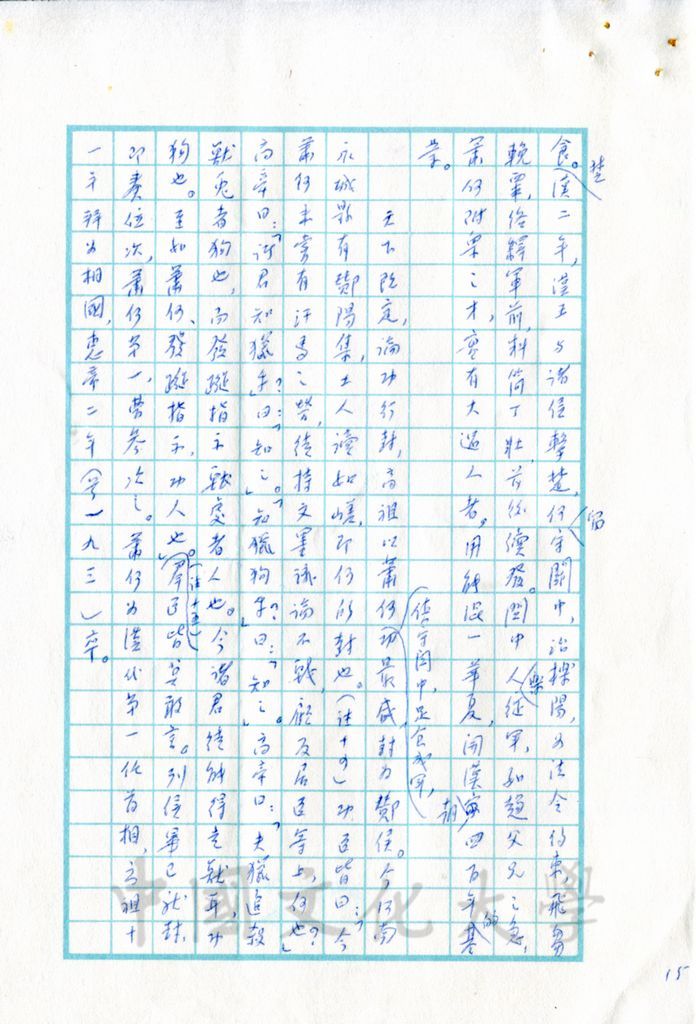 食。漢二年,漢王与諸侯擊楚,何守關中,治櫟陽,为法令約束,飛芻
輓粟,給餉軍前,料簡丁壯,前線續發。關中人樂從軍,如趨父兄之急,
蕭何附眾之才,實有大過人者。用能混一華夏,開漢朝四百年的基
業。
天下既定,論功行封,高祖以蕭何使守關中,足食成軍,功最盛,封为酇侯。今河南
永城縣有酇陽集,土人讀如嵯,即何所封也。(註十四)功臣皆曰:「今
蕭何未嘗有汗馬之勞,徒持文墨議論不戰,顧反居臣等上,何也?」
高帝曰:「諸君知獵乎?」曰:「知之。」「知獵狗乎?」曰:「知之。」高帝曰:「夫獵,追殺
獸兔者狗也,而發蹤指示獸處者人也。今諸君徒能得走獸耳,功
狗也。至如蕭何,發蹤指示,功人也。」(註十五)群臣皆莫敢言。列侯畢已就封,
即奏位次,蕭何第一,曹參次之。蕭何为漢代第一任首相,高祖十
一年拜为相國,惠帝二年(前一九三)卒。
楚
留
15
中國文化大學